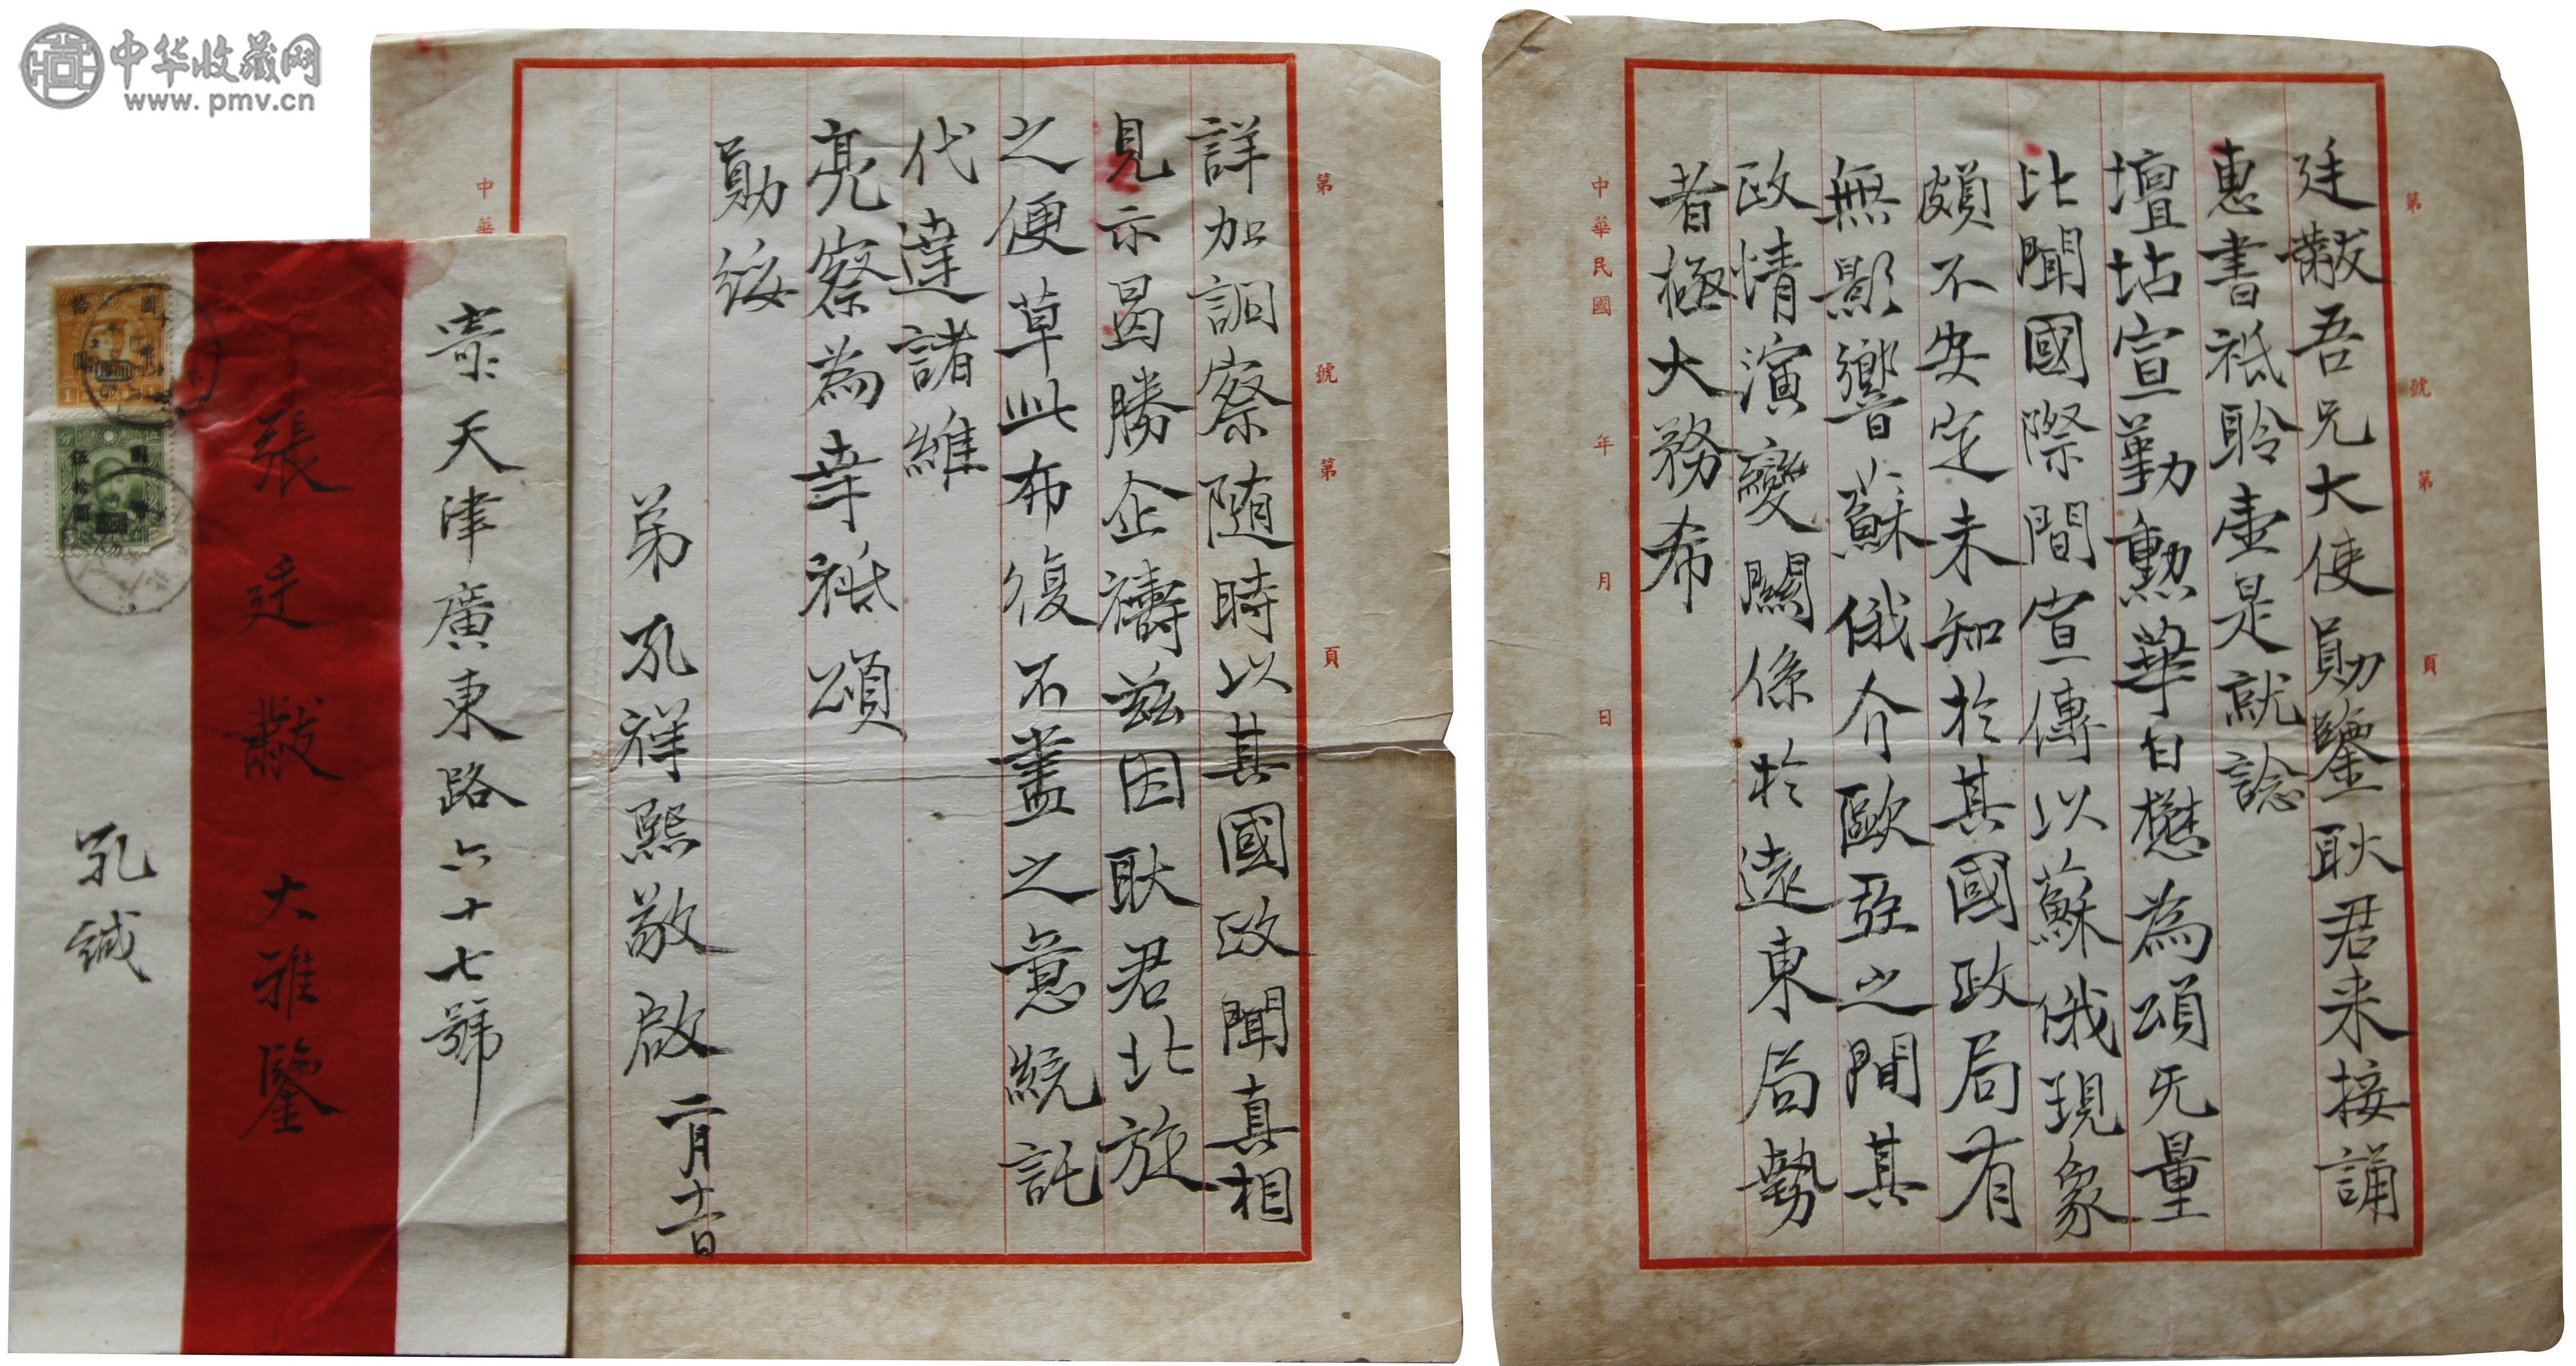 中华收藏网
www.pmv.cn
第 號 第 頁
廷黻吾兄大使勛鑒耿君来接誦
惠書祗聆壹是就諗
壇坫宣勤勲華日懋為頌无量
比聞國際間宣傳以蘇俄現象
頗不安定未知於其國政局有
無影響蘇俄介歐亞之間其
政情演變關係於遠東局勢
者極大務希
中華民國 年 月 日
第 號 第 頁
詳加調察随時以其國政聞真相
見示曷勝企禱兹因耿君北旋
之便草此布復不盡之意統託
代達諸維
亮察為幸祗頌
勛綏
弟孔祥熙敬啟 二月十六日
中華
寄天津廣東路六十七號
張廷黻 大雅鑒
孔緘
國幣
拾圓
1
國幣
伍拾圓
伍分